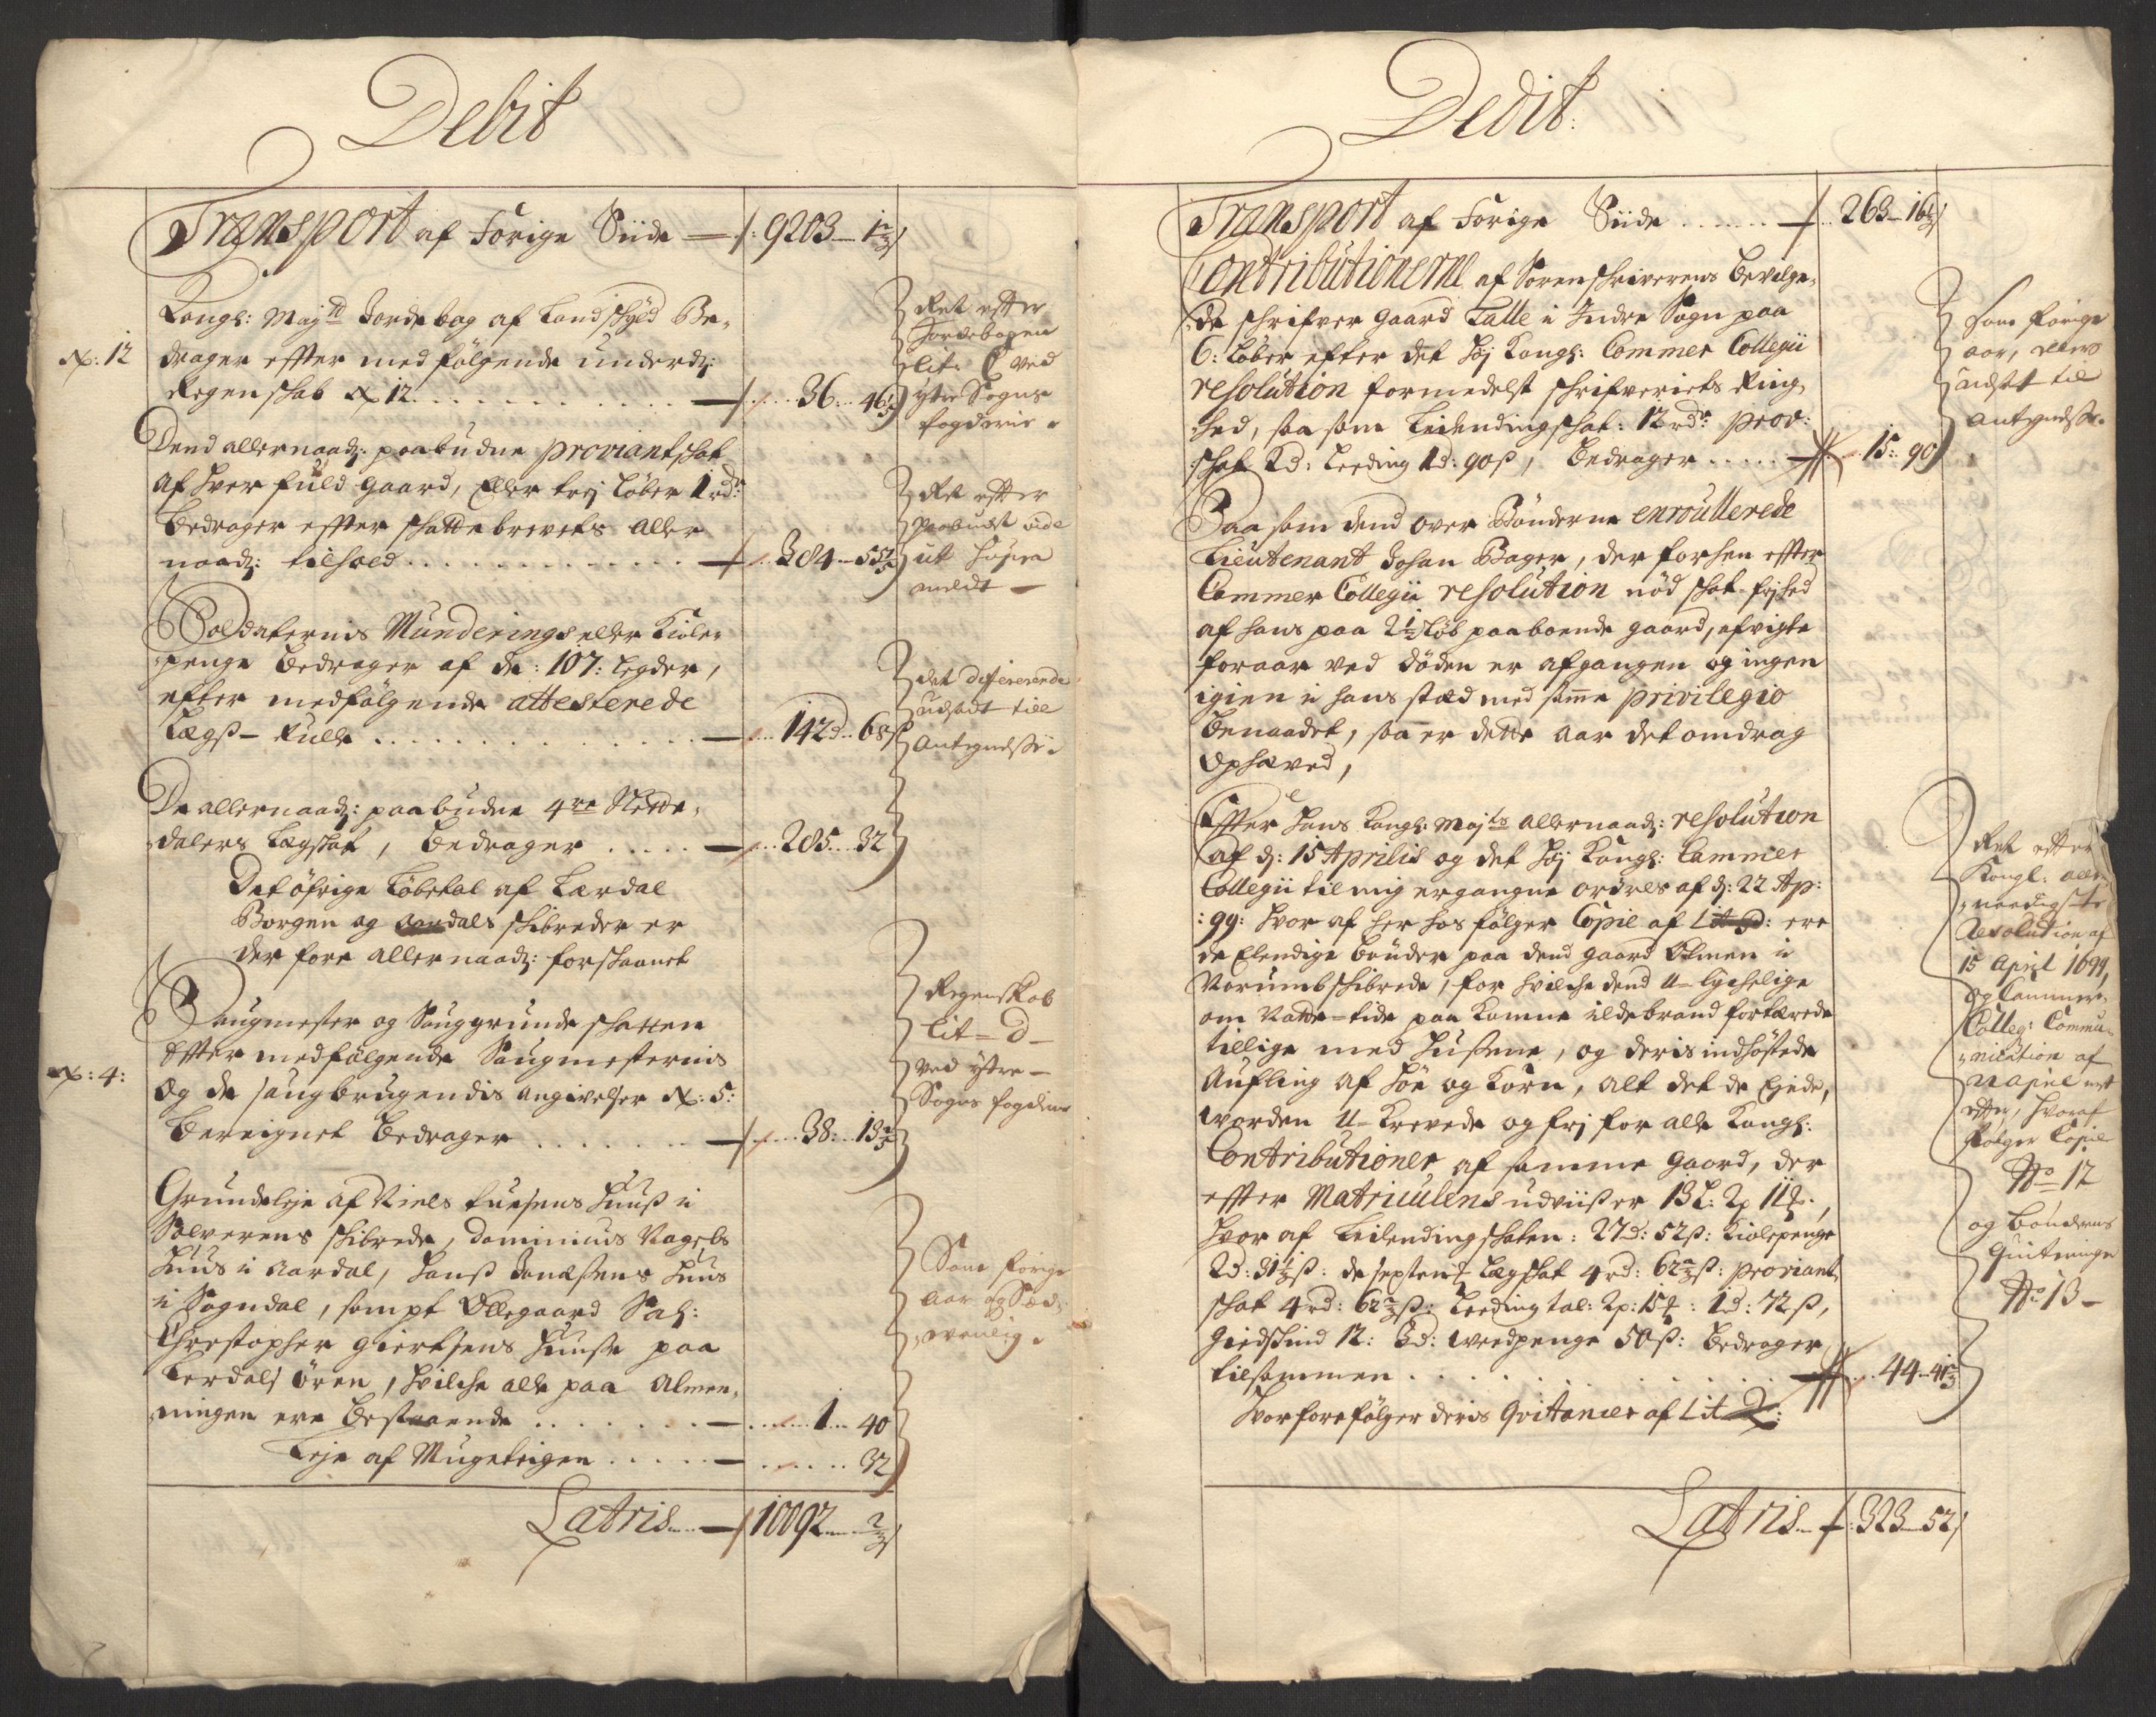 Debit
Transport af Forige Siide — 9203 - 1 2/3
Kongl: Maj:ts Jordebog af Landskyld Be-
N: 12 drager effter med følgende underd:
Regenskab N 12 — 36 - 46
Dend allernaad: paabudne proviantskat
af hver fuld gaard, Eller trej Løber 1 rdr
Bedrager effter skattebrevets aller
naad: tilhold — 384 - 55
Soldaternis Munderings eller Kiole-
penge bedrager af de: 107: Legder,
efter medfølgende attesterede
Lægs-Rulle — 142 d - 68
De allernaad: paabudne 4re Slette-
dalers Legskat, bedrager — 285 - 32
Det øfrige Løbetal af Lærdal
Borgen og Aardals skibreder er
der fore allernaad: forskaanet
Saugmester og Sauggrunde skatten
Effter medfølgende Saugmesternis
N: 4: Og de saugbrugendis angivelser N: 5:
Bereignet bedrager — 38: 13
Grundeleje af Niels Tuesens Huuss i
Sølverens skibrede, Dominicus Nagels
Huus i Aardal, Hans Jensens Huus
i Sogndal, sampt Ollegaard Sal:
Chrestopher Giertsens Huuse paa
Lerdals Ören, hvilche alle paa Almen-
ningen ere bestaaende — 1 - 40
Leje af Mugeteigen — 32
Latris — 10092 - 2/3
Ret effter
Jordebogen
lit: C ved
ytre Sogns
fogderie
Ret effter
paabudet vide
ut supra
meldt —
det differerende
udsadt till
Antegnelse.
Regenskab
lit - D -
ved ytre -
Sogns fogderie
Som forige
Aar og Sæd-
vanlig.
Dedit:
Transport af Forige Siide — 263 - 16
Contributionerne af Sorenskriverens bevilge-
de skrifver gaard Talle i Indre Sogn paa
6: Løber efter det høj Kongl: Cammer Collegii
resolution formedelst skrifveriets Ring-
hed, saa som Leilendingskat: 12 rdr prov:
skat 2 d: Leeding 1 d: 90 ß, bedrager — 15: 90
Saa som dend over Bønderne enroullerede
Lieutenant Johan Bager, der forhen effter
Cammer Collegii resolution nød skat-frjhed
af hans paa 2 1/2 Løb paaboende gaard, afvigte
foraar ved døden er afgangen og ingen
igien i hans stæd med samme privilegio
benaadet, saa er dette aar det omdrag
Ophæved,
Effter Hans Kongl: Maj:ts allernaad: resolution
af d: 15 Aprilis og det høj Kongl: Cammer
Collegii til mig ergangne ordres af d: 22 Ap:
:99: hvor af her hos følger Copie af Lit D: ere
de Elendige bønder paa dend gaard Ølmen i
Norumbs skibrede, for hvilche dend U-lychelige
om Natte-tide paa Komne ildebrand fortærede
tillige med Husene, og deris indhøstede
Aufling af Høe og Korn, alt det de Ejede,
worden U-Krevede og frj for alle Kongl:
Contributioner af samme gaard, der
effter Matriculens udviiser 13 L: 2 p 11 ,
hvor af Leilendingskaten: 27 d: 52 ß: Kiolepenge
2 d: 31 1/2 ß: de Legskat 4 rd: 62 ß: proviant
skat 4 rd: 62 ß: Leeding tal: 2 p: 15 : 1 d: 72 ß,
Giedskind 12: 3 d: weedpenge 50 ß: bedrager
tilsammen — 44 - 41
Hvorfore følger deris Qvitancier af Lit
Latris — 323 - 52
Som forige
aar, dets
udsatt til
Antegnelse.
Ret effter
Kongl: aller-
naadigste
Resolution af
15 April 1699,
og Cammer-
Colleg: Commu-
nication af
effter, hvoraf
følger Copie
No 12
og bønderns
Quitering
No 13 -